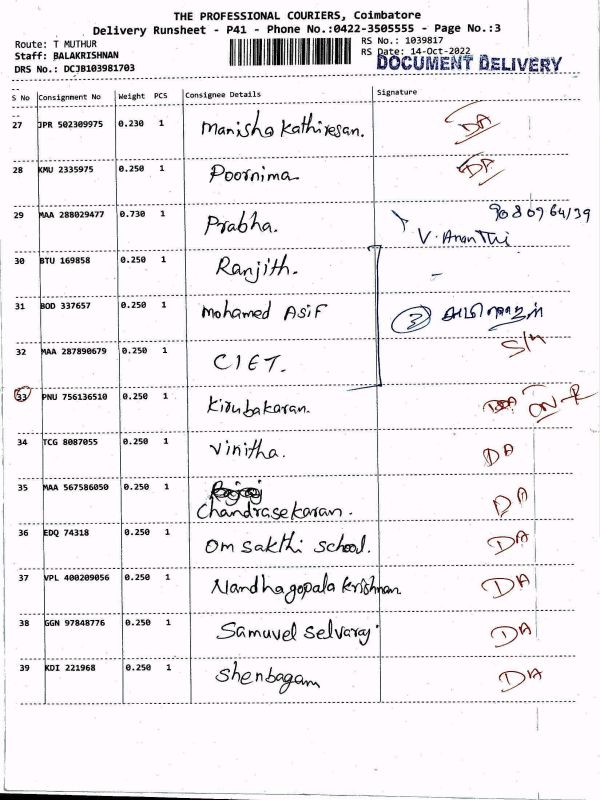 THE PROFESSIONAL COURIERS, Coimbatore
Delivery Runsheet - P41 - Phone No.:0422-3505555 - Page No.:3
Route: T MUTHUR
RS No.: 1039817
Staff: BALAKRISHNAN
RS Date: 14-Oct-2022
DRS No.: DCJB103981703
DOCUMENT DELIVERY
S No Consignment No Weight PCS Consignee Details Signature
27 JPR 502309975 0.230 1 Manisha Kathiresan. DA
28 KMU 2335975 0.250 1 Poornima DA
29 MAA 288029477 0.730 1 Prabha. 9080964139
V. Ananthi
30 BTU 169858 0.250 1 Ranjith.
31 BOD 337657 0.250 1 Mohamed Asif 3
32 MAA 287890679 0.250 1 CIET.
33 PNU 756136510 0.250 1 Kirubakaran. DA
34 TCG 8087055 0.250 1 Vinitha. DA
35 MAA 567586050 0.250 1 Chandrasekaran. DA
36 EDQ 74318 0.250 1 Om sakthi school. DA
37 VPL 400209056 0.250 1 Nandhagopala krishnan. DA
38 GGN 97848776 0.250 1 Samuvel selvaraj DA
39 KDI 221968 0.250 1 Shenbagam DA